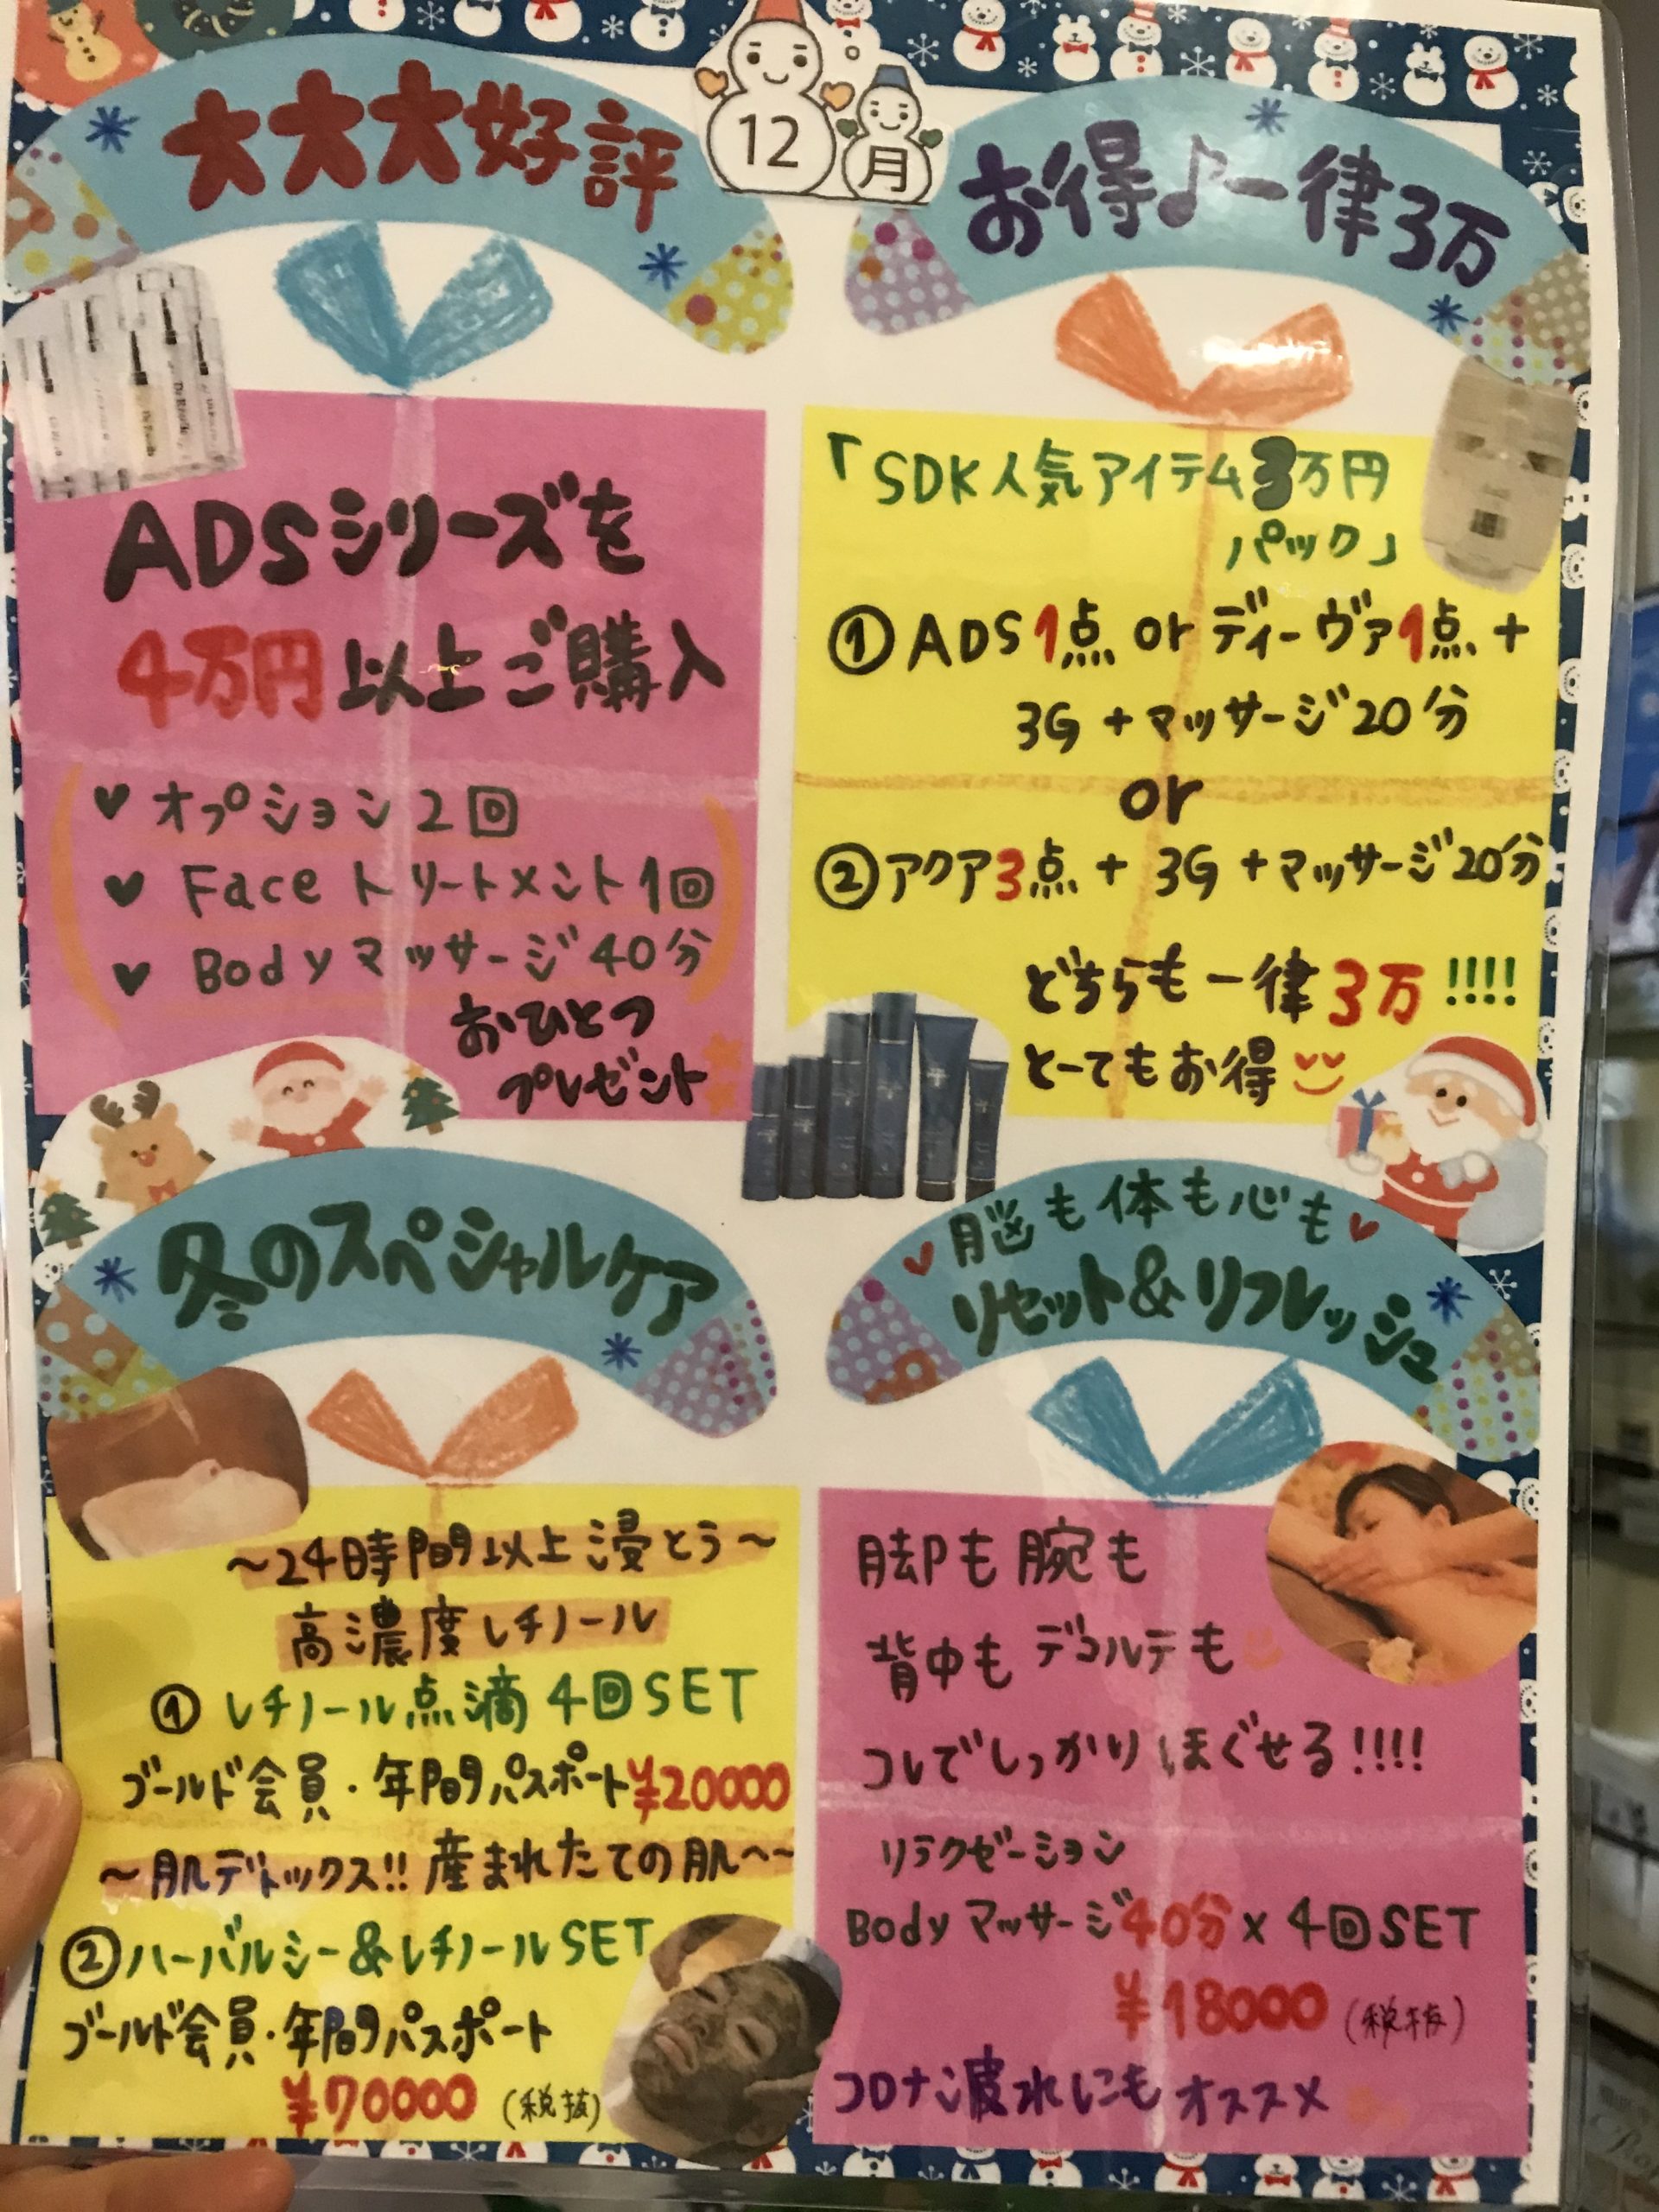 12
月
大大大好評
ADSシリーズを
4万円以上ご購入
♥ オプション2回
♥ Faceトリートメント1回
♥ Bodyマッサージ40分
おひとつ
プレゼント
お得♪一律3万
「SDK人気アイテム3万円
パック」
①ADS1点 or ディーヴァ1点+
3G+マッサージ20分
or
②アクア3点+3G+マッサージ20分
どちらも一律3万!!!!
とーてもお得
冬のスペシャルケア
〜24時間以上浸とう〜
高濃度レチノール
① レチノール点滴 4回SET
ゴールド会員・年間パスポート¥20000
〜肌デトックス!!産まれたての肌へ〜
②ハーバルシー&レチノールSET
ゴールド会員・年間パスポート
¥70000 (税抜)
♥脳も体も心も♥
リセット&リフレッシュ
脚も腕も
背中もデコルテも
コレでしっかりほぐせる!!!!
リラクゼーション
Bodyマッサージ40分×4回SET
¥18000 (税抜)
コロナ疲れにもオススメ